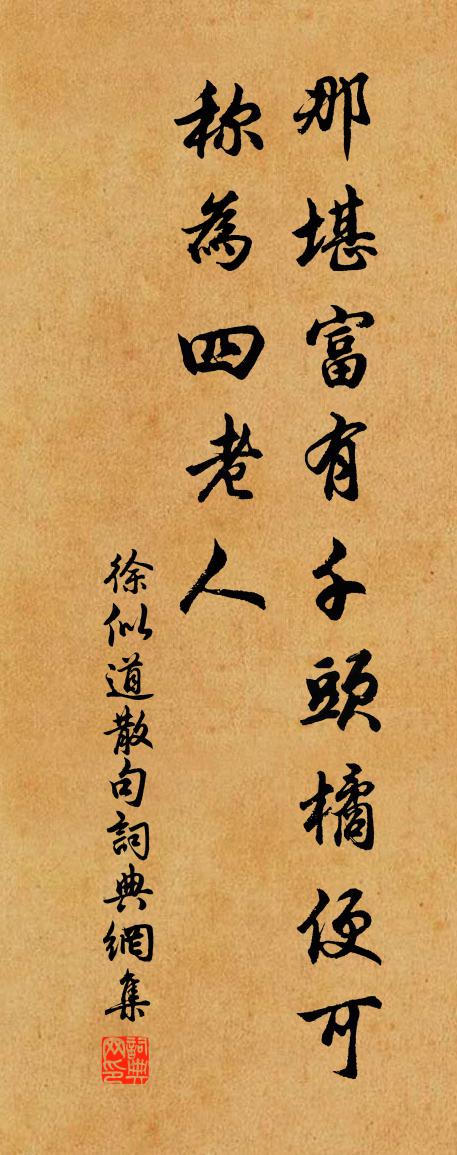 那堪富有千頭橘便可
称為四老人
徐似道散句詞典網集
詞典网印